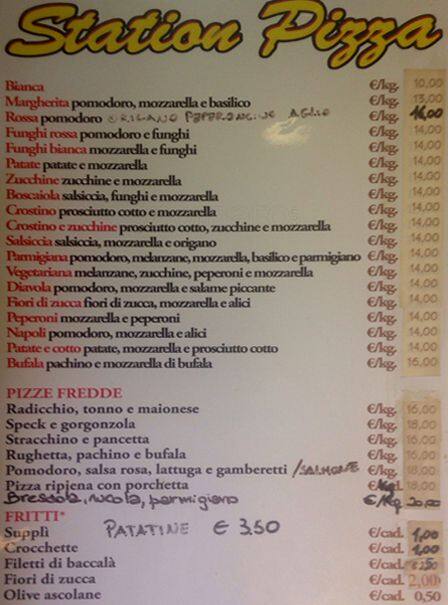 Station Pizza
Bianca €/kg. 10,00
Margherita pomodoro, mozzarella e basilico €/kg. 13,00
Rossa pomodoro ORIGANO PEPERONCINO AGLIO €/kg. 14,00
Funghi rossa pomodoro e funghi €/kg. 14,00
Funghi bianca mozzarella e funghi €/kg. 14,00
Patate patate e mozzarella €/kg. 14,00
Zucchine zucchine e mozzarella €/kg. 14,00
Boscaiola salsiccia, funghi e mozzarella €/kg. 14,00
Crostino prosciutto cotto e mozzarella €/kg. 14,00
Crostino e zucchine prosciutto cotto, zucchine e mozzarella €/kg. 14,00
Salsiccia salsiccia, mozzarella e origano €/kg. 14,00
Parmigiana pomodoro, melanzane, mozzarella, basilico e parmigiano €/kg. 14,00
Vegetariana melanzane, zucchine, peperoni e mozzarella €/kg. 14,00
Diavola pomodoro, mozzarella e salame piccante €/kg. 14,00
Fiori di zucca fiori di zucca, mozzarella e alici €/kg. 14,00
Peperoni mozzarella e peperoni €/kg. 14,00
Napoli pomodoro, mozzarella e alici €/kg. 14,00
Patate e cotto patate, mozzarella e prosciutto cotto €/kg. 14,00
Bufala pachino e mozzarella di bufala €/kg. 16,00
PIZZE FREDDE
Radicchio, tonno e maionese €/kg. 16,00
Speck e gorgonzola €/kg. 18,00
Stracchino e pancetta €/kg. 16,00
Rughetta, pachino e bufala €/kg. 16,00
Pomodoro, salsa rosa, lattuga e gamberetti /SALMONE €/kg. 18,00
Pizza ripiena con porchetta 18,00
Bresaola, rucola, parmigiano €/Kg 20,00
FRITTI*
PATATINE € 3.50
Supplì €/cad. 1,00
Crocchette €/cad. 1,00
Filetti di baccalà €/cad.
Fiori di zucca €/cad. 2,00
Olive ascolane €/cad. 0,50